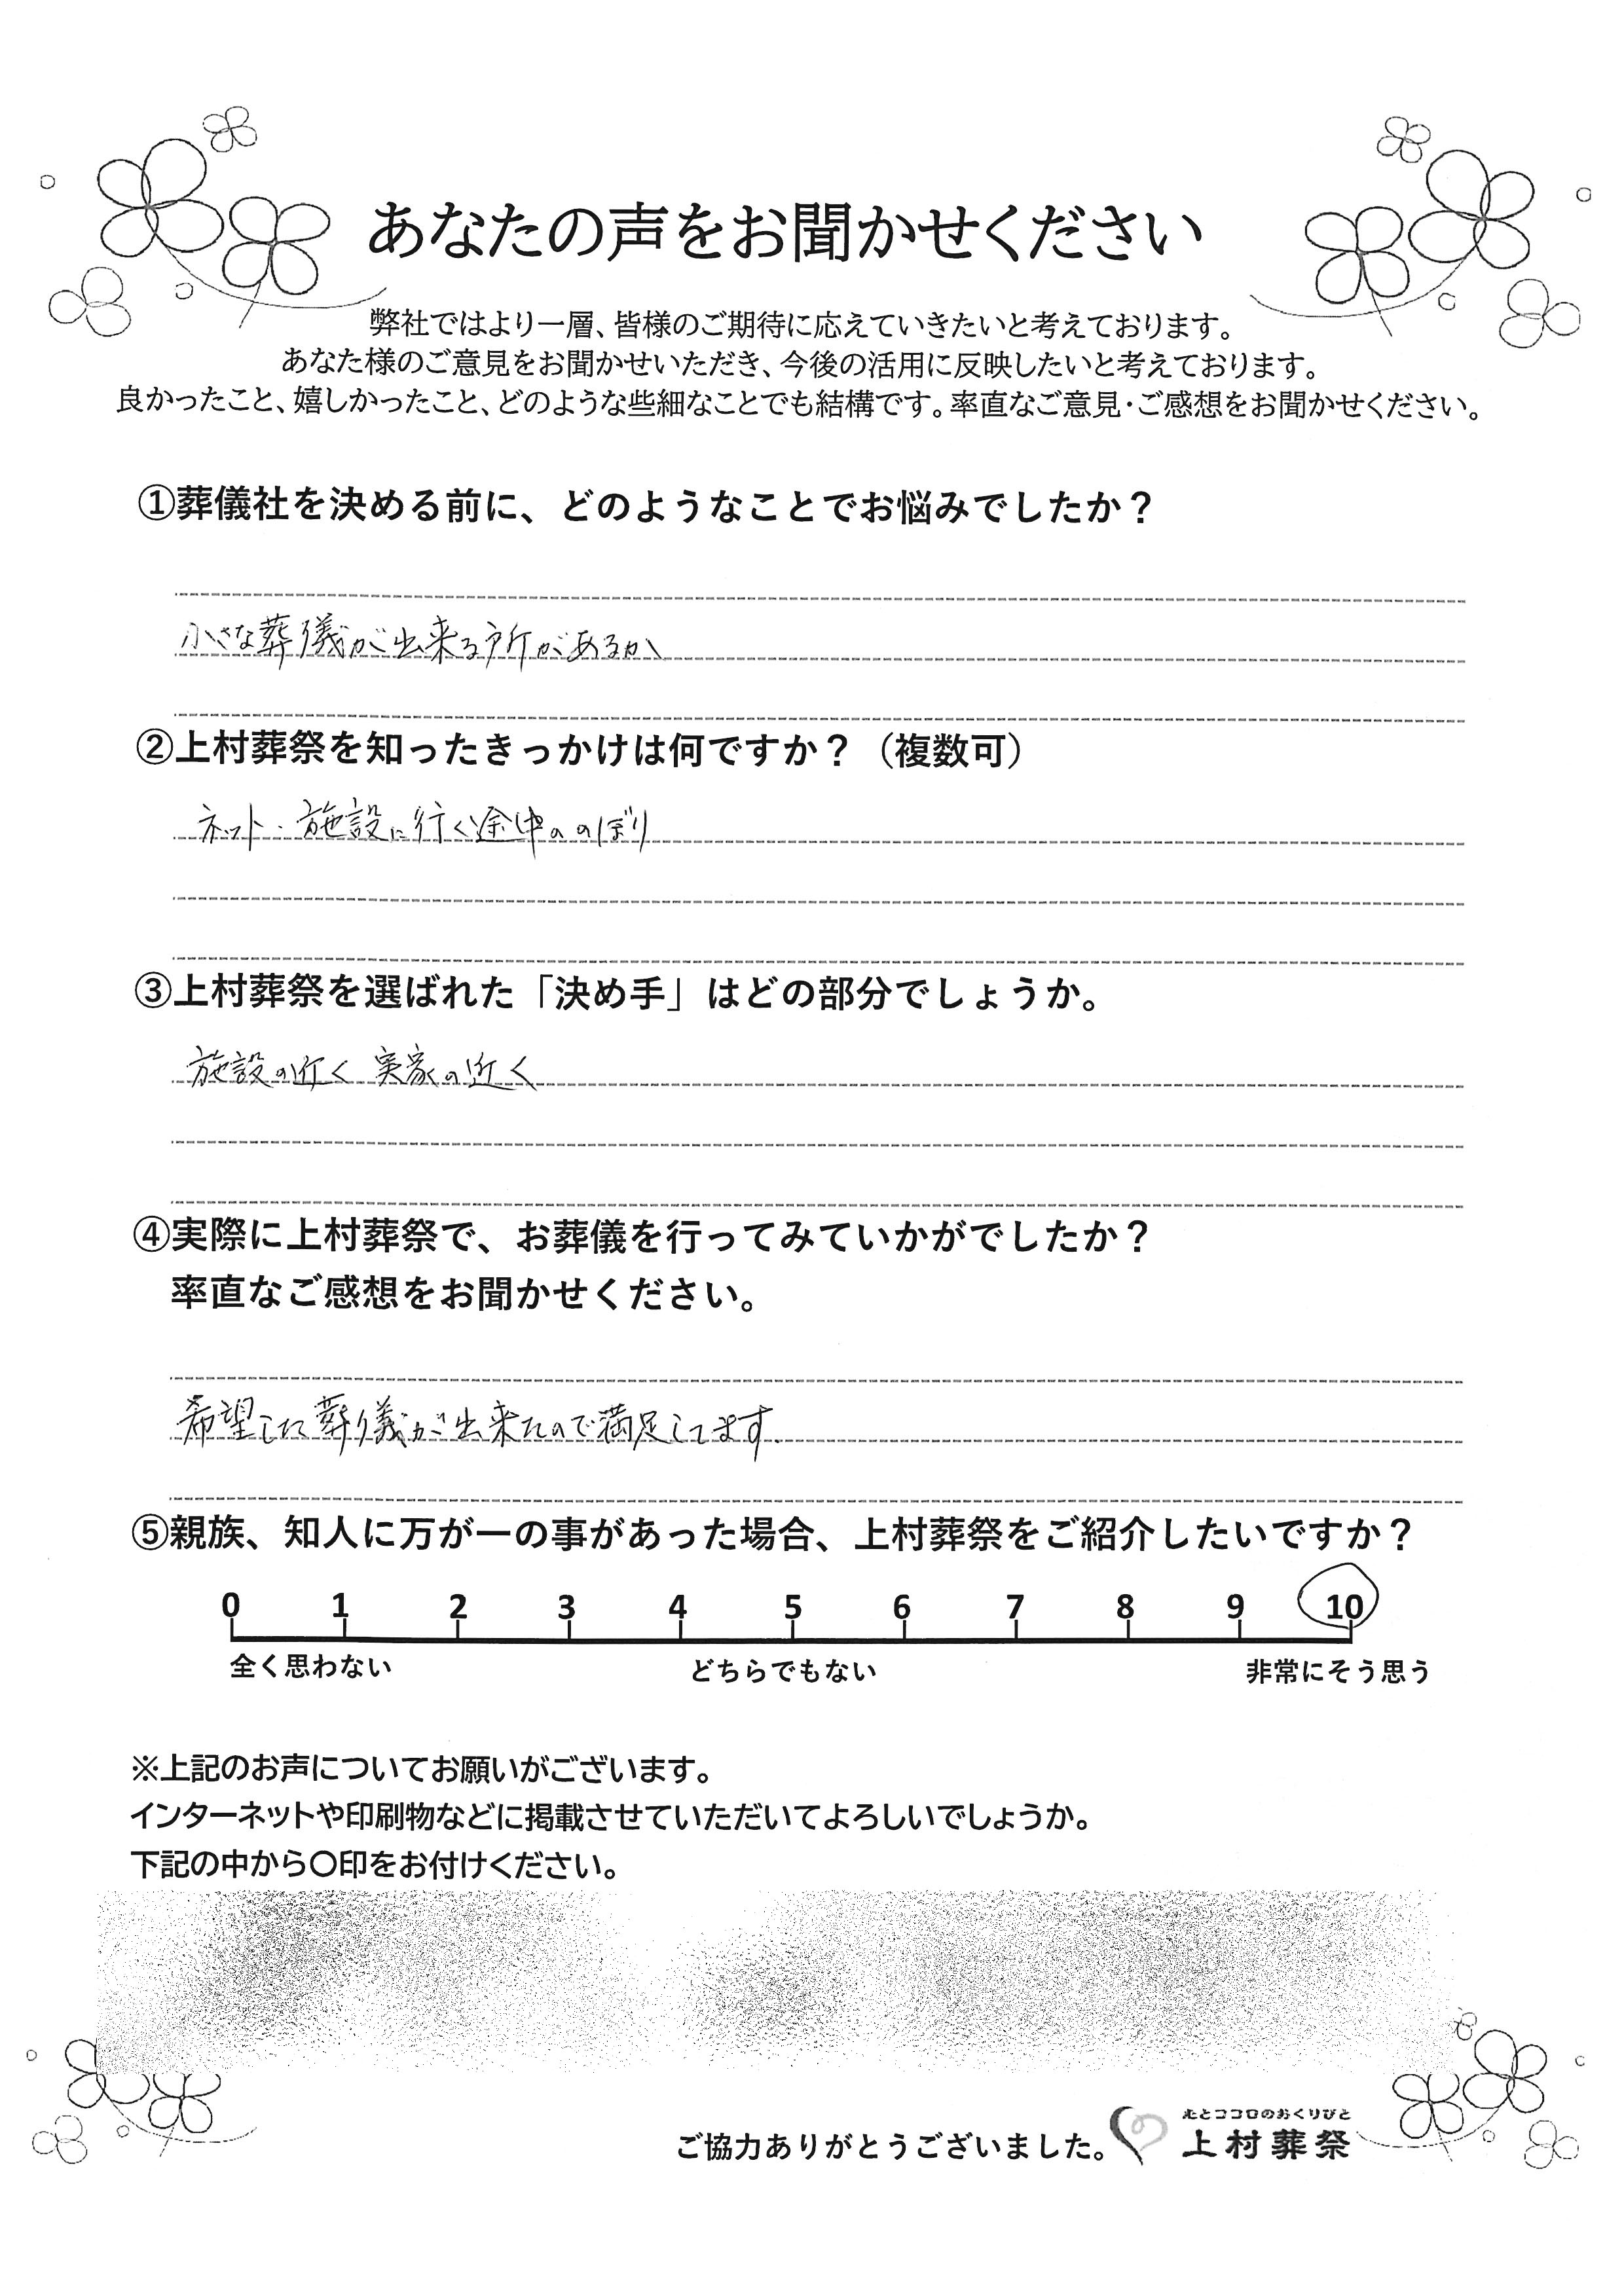 あなたの声をお聞かせください
弊社ではより一層、皆様のご期待に応えていきたいと考えております。
あなた様のご意見をお聞かせいただき、今後の活用に反映したいと考えております。
良かったこと、嬉しかったこと、どのような些細なことでも結構です。率直なご意見・ご感想をお聞かせください。
①葬儀社を決める前に、どのようなことでお悩みでしたか？
小さな葬儀が出来る所があるか
②上村葬祭を知ったきっかけは何ですか？（複数可）
ネット・施設に行く途中ののぼり
③上村葬祭を選ばれた「決め手」はどの部分でしょうか。
施設の近く 実家の近く
④実際に上村葬祭で、お葬儀を行ってみていかがでしたか？
率直なご感想をお聞かせください。
希望した葬儀が出来たので満足してます.
⑤親族、知人に万が一の事があった場合、上村葬祭をご紹介したいですか？
0 1 2 3 4 5 6 7 8 9 10
全く思わない どちらでもない 非常にそう思う
※上記のお声についてお願いがございます。
インターネットや印刷物などに掲載させていただいてよろしいでしょうか。
下記の中から〇印をお付けください。
ご協力ありがとうございました。
とココロのおくりびと
上村葬祭